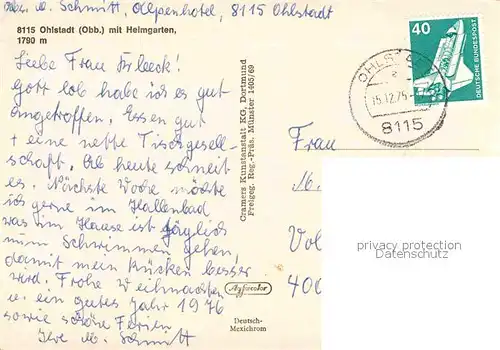 M. Schmitt, Alpenhotel, 8115 Ohlstadt
8115 Ohlstadt (Obb.) mit Heimgarten,
1790 m
Liebe Frau
Gott lob habe ich es gut
angetroffen. Essen gut
+ eine nette Tischgesell-
schaft. Ab heute schneit
es. Nächste Woche möchte
ich gerne im Hallenbad
was im Hause ist täglich
zum Schwimmen gehen,
damit mein Rücken besser
wird. Frohe Weihnachten
u. ein gutes Jahr 1976
sowie schöne Ferien
Ihre M. Schmitt
Cramers Kunstanstalt KG, Dortmund
Freigeg. Reg.-Präs. Münster 1465/69
Agfacolor
Deutsch-
Mexichrom
40
DEUTSCHE BUNDESPOST
OHLSTADT
15.12.75
8115
Frau
M.
Vol
400
privacy protection
Datenschutz